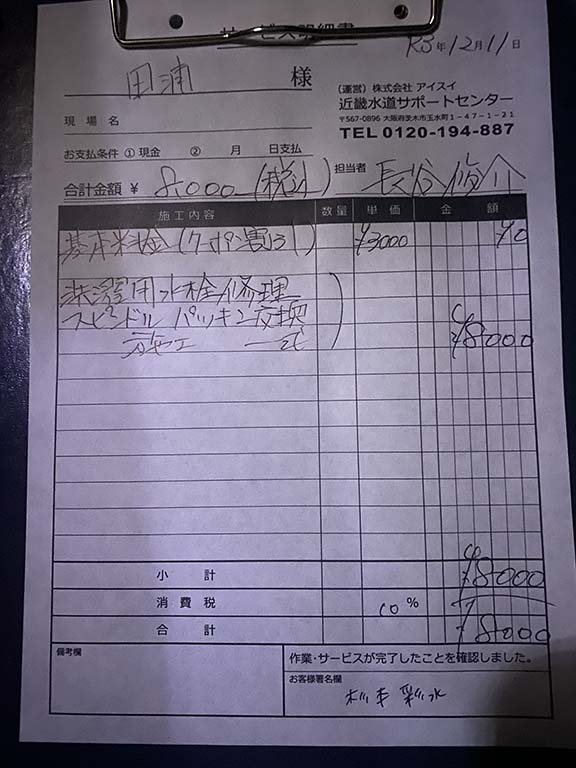 サービス明細書
R3年12月11日
田浦 様
(運営) 株式会社 アイスイ
近畿水道サポートセンター
〒567-0896 大阪府茨木市玉水町1-47-1-21
TEL 0120-194-887
現場名
お支払条件 ① 現金 ② 月 日支払
合計金額 ¥ 8000 (税込)
担当者 長谷 俊介
施工内容 数量 単価 金額
基本料金 (クーポン割引) ¥3000 ¥0
洗濯用水栓修理
スピンドル パッキン交換
施工 一式 ¥8000
小計 ¥8000
消費税 10%
合計 ¥8000
備考欄
作業・サービスが完了したことを確認しました。
お客様署名欄
杉本